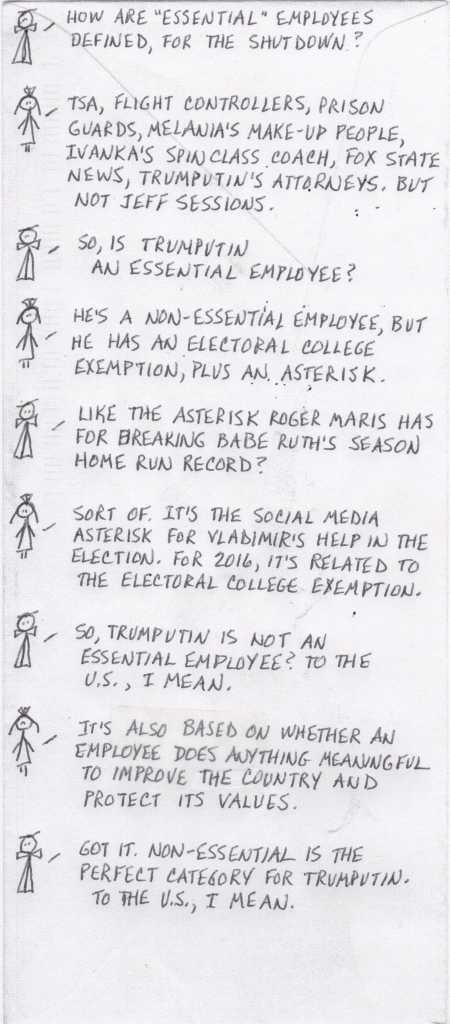 HOW ARE "ESSENTIAL" EMPLOYEES
DEFINED, FOR THE SHUTDOWN?
TSA, FLIGHT CONTROLLERS, PRISON
GUARDS, MELANIA'S MAKE-UP PEOPLE,
IVANKA'S SPIN CLASS COACH, FOX STATE
NEWS, TRUMPUTIN'S ATTORNEYS. BUT
NOT JEFF SESSIONS.
SO, IS TRUMPUTIN
AN ESSENTIAL EMPLOYEE?
HE'S A NON-ESSENTIAL EMPLOYEE, BUT
HE HAS AN ELECTORAL COLLEGE
EXEMPTION, PLUS AN ASTERISK.
LIKE THE ASTERISK ROGER MARIS HAS
FOR BREAKING BABE RUTH'S SEASON
HOME RUN RECORD?
SORT OF. IT'S THE SOCIAL MEDIA
ASTERISK FOR VLADIMIR'S HELP IN THE
ELECTION. FOR 2016, IT'S RELATED TO
THE ELECTORAL COLLEGE EXEMPTION.
SO, TRUMPUTIN IS NOT AN
ESSENTIAL EMPLOYEE? TO THE
U.S., I MEAN.
IT'S ALSO BASED ON WHETHER AN
EMPLOYEE DOES ANYTHING MEANINGFUL
TO IMPROVE THE COUNTRY AND
PROTECT ITS VALUES.
GOT IT. NON-ESSENTIAL IS THE
PERFECT CATEGORY FOR TRUMPUTIN.
TO THE U.S., I MEAN.